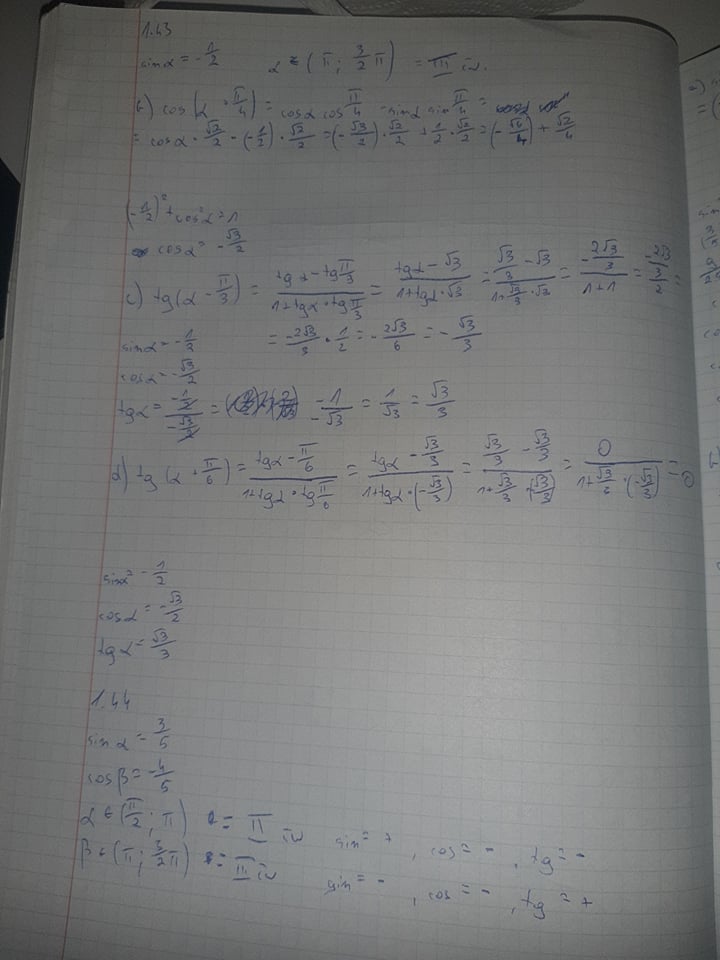 1.43
sinα = -1/2 α = (π; 3/2 π) = III ćw.
b) cos(α + π/4) = cosα cos π/4 - sinα sin π/4 =
= cosα · √2/2 - (-1/2) · √2/2 = (-√3/2) · √2/2 + 1/2 · √2/2 = (-√6/4) + √2/4
(-1/2)² + cos²α = 1
cosα = -√3/2
c) tg(α - π/3) = (tgα - tg π/3)/(1 + tgα · tg π/3) = (tgα - √3)/(1 + tgα · √3) = (√3/3 - √3)/(1 + √3/3 · √3) = (-2√3/3)/(1+1) = (-2√3/3)/2 =
sinα = -1/2 = -2√3/3 · 1/2 = -2√3/6 = -√3/3
cosα = -√3/2
tgα = (-1/2)/(-√3/2) = -1/-√3 = 1/√3 = √3/3
d) tg(α + π/6) = (tgα - π/6)/(1 + tgα · tg π/6) = (tgα - √3/3)/(1 + tgα · (-√3/3)) = (√3/3 - √3/3)/(1 + √3/3 · (-√3/3)) = 0/(1 + √3/3 · (-√3/3)) = 0
sinα = -1/2
cosα = -√3/2
tgα = √3/3
1.44
sinα = 3/5
cosβ = -4/5
α ∈ (π/2; π) = II ćw sin = +, cos = -, tg = -
β ∈ (π; 3/2 π) = III ćw sin = -, cos = -, tg = +